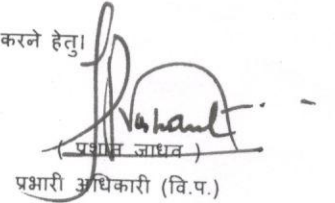 करने हेतु।
( प्रशांत जाधव )
प्रभारी अधिकारी (वि.प.)